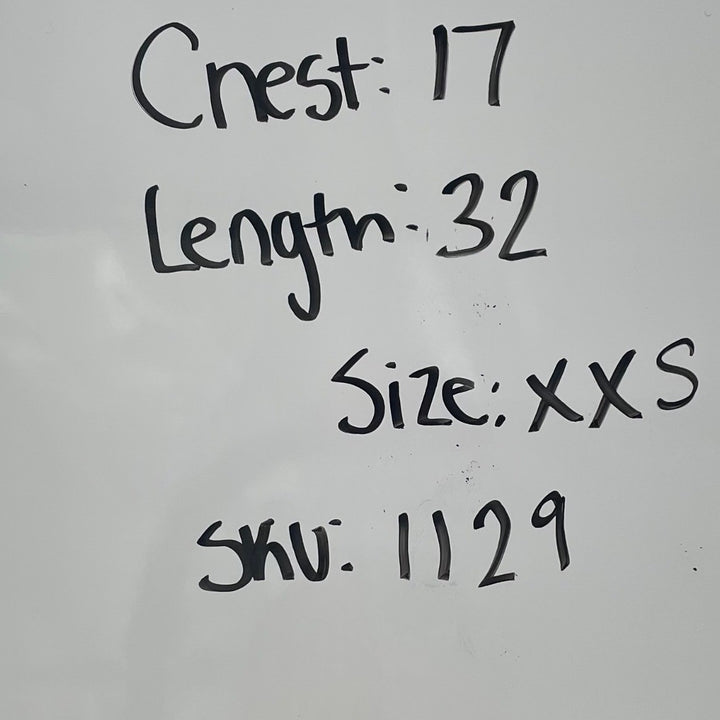 Chest: 17
Length: 32
Size: XXS
SKU: 1129